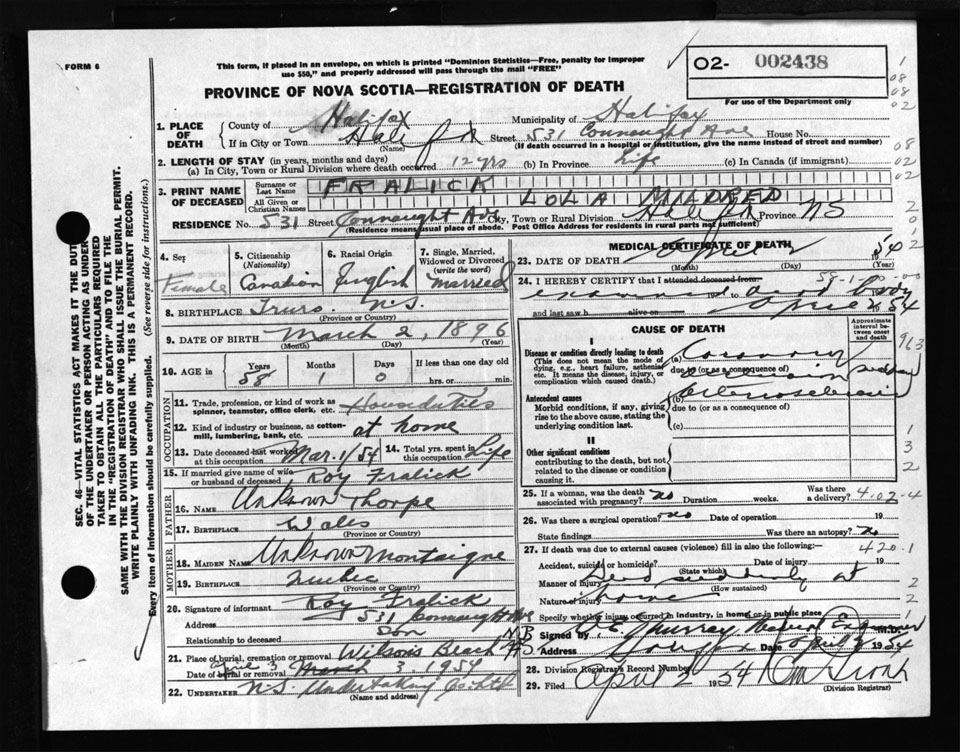 FORM 6
This form, if placed in an envelope, on which is printed "Dominion Statistics—Free, penalty for improper
use $50," and properly addressed will pass through the mail "FREE"
O2- 002438
For use of the Department only
PROVINCE OF NOVA SCOTIA—REGISTRATION OF DEATH
1. PLACE OF DEATH
County of Halifax Municipality of Halifax
If in City or Town Halifax Street 531 Connaught Ave House No.
(Name) (If death occurred in a hospital or institution, give the name instead of street and number)
2. LENGTH OF STAY (in years, months and days)
(a) In City, Town or Rural Division where death occurred 12 yrs (b) In Province Life (c) In Canada (if immigrant)
3. PRINT NAME OF DECEASED
Surname or Last Name FRALICK
All Given or Christian Names LOLA MILDRED
RESIDENCE No. 531 Street Connaught Ave City, Town or Rural Division Halifax Province NS
(Residence means usual place of abode. Post Office Address for residents in rural parts not sufficient)
4. Sex Female
5. Citizenship (Nationality) Canadian
6. Racial Origin English
7. Single, Married, Widowed or Divorced (write the word) Married
8. BIRTHPLACE Truro N.S.
(Province or Country)
9. DATE OF BIRTH March 2, 1896
(Month) (Day) (Year)
10. AGE in Years 58 Months 1 Days 0 If less than one day old
hrs. or min.
OCCUPATION
11. Trade, profession, or kind of work as
spinner, teamster, office clerk, etc. Household Duties
12. Kind of industry or business, as cotton-
mill, lumbering, bank, etc. at home
13. Date deceased last worked at this occupation Mar. 1/54
14. Total yrs. spent in this occupation Life
15. If married give name of wife
or husband of deceased Roy Fralick
FATHER
16. NAME Unknown Thorpe
17. BIRTHPLACE Wales
(Province or Country)
MOTHER
18. MAIDEN NAME Unknown Montaigne
19. BIRTHPLACE
(Province or Country)
20. Signature of informant Roy Fralick
Address 531 Connaught Ave
Relationship to deceased Son
21. Place of burial, cremation or removal Wilsons Beach N B
Date of burial or removal April 3 March 3, 1954
22. UNDERTAKER N.S. Undertaking Co. Ltd
(Name and address)
MEDICAL CERTIFICATE OF DEATH
23. DATE OF DEATH April 2 1954
(Month) (Day) (Year)
24. I HEREBY CERTIFY that I attended deceased from:
examined dead body
and last saw h alive on April 2 1954
CAUSE OF DEATH
Approximate interval between onset and death
I
Disease or condition directly leading to death
(This does not mean the mode of
dying, e.g., heart failure, asthenia
etc. It means the disease, injury, or
complication which caused death.)
(a) Coronary
due to (or as a consequence of)
Antecedent causes
Morbid conditions, if any, giving
rise to the above cause, stating the
underlying condition last.
(b) Arteriosclerosis
due to (or as a consequence of)
(c)
II
Other significant conditions
contributing to the death, but not
related to the disease or condition
causing it.
25. If a woman, was the death
associated with pregnancy? no Duration weeks. Was there a delivery?
26. Was there a surgical operation? no Date of operation
State findings Was there an autopsy? no
27. If death was due to external causes (violence) fill in also the following:—
Accident, suicide or homicide? Date of injury
(State which)
Manner of injury Died suddenly at
(How sustained)
Nature of injury home
Specify whether injury occurred in industry, in home or in public place
Signed by Murray Medical Examiner M.D.
Address Halifax N.S. Date April 3 1954
28. Division Registrar's Record Number
29. Filed April 2 1954
(Division Registrar)
420.1
SEC. 46—VITAL STATISTICS ACT MAKES IT THE DUTY
OF THE UNDERTAKER OR PERSON ACTING AS UNDER-
TAKER TO OBTAIN ALL THE PARTICULARS REQUIRED
IN THE "REGISTRATION OF DEATH" AND TO FILE THE
SAME WITH THE DIVISION REGISTRAR WHO SHALL ISSUE THE BURIAL PERMIT.
WRITE PLAINLY WITH UNFADING INK. THIS IS A PERMANENT RECORD.
Every item of information should be carefully supplied. (See reverse side for instructions.)